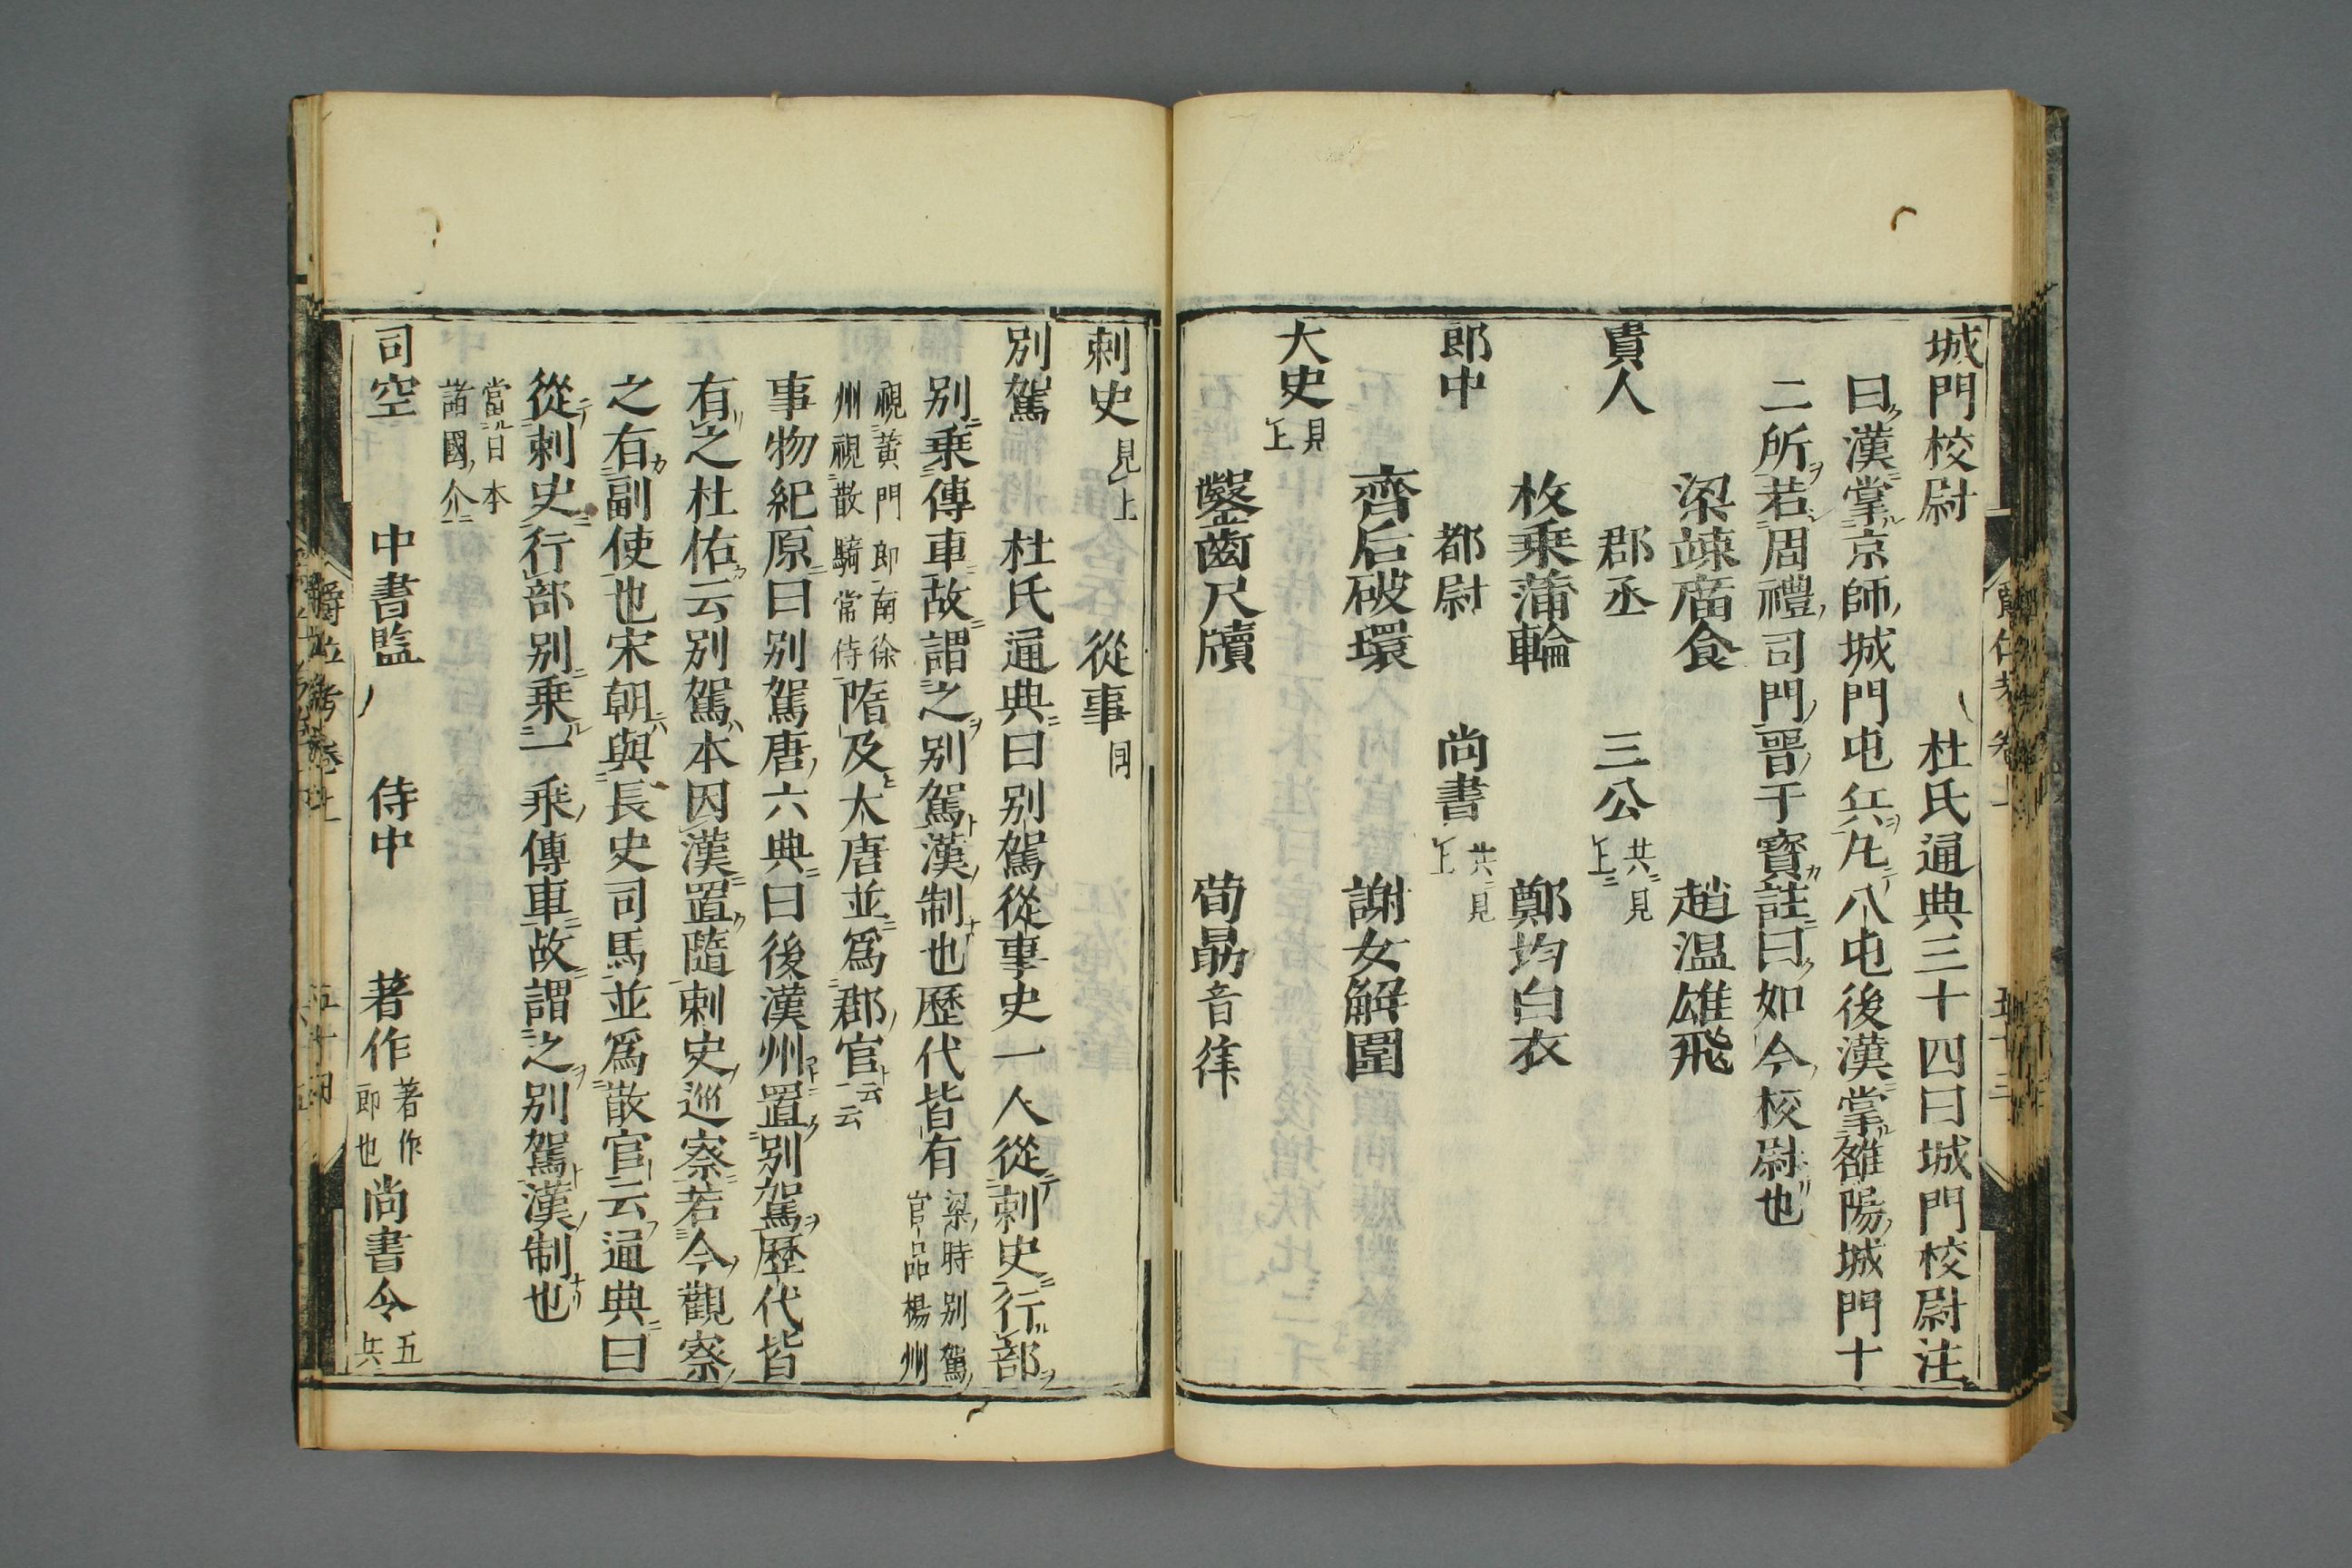 城門校尉 杜氏通典三十四曰城門校尉注
曰漢掌京師城門屯兵凢八屯後漢掌雒陽城門十
二所若周禮司門晋于寳註曰如今校尉也
梁竦廟食 趙温雄飛
貴人 郡丞 三公共見上
枚乗蒲輪 鄭均白衣
郎中 都尉 尚書共見上
齊后破環 謝女解圍
大史見上
鑿齒尺牘 荀勗音律
刺史見上 從事同
別駕 杜氏通典曰別駕從事史一人從刺史行部
別乗傳車故謂之別駕漢制也歷代皆有梁時別駕官品楊州
視黄門郎南徐州視散騎常侍隋及大唐並爲郡官云云
事物紀原曰別駕唐六典曰後漢州置別駕歷代皆
有之杜佑云別駕本因漢置隨刺史巡察若今觀察
之有副使也宋朝與長史司馬並爲散官云通典曰
從刺史行部別乗一乘傳車故謂之別駕漢制也
當日本諸國介
司空 中書監 侍中 著作著作郎也尚書令五兵